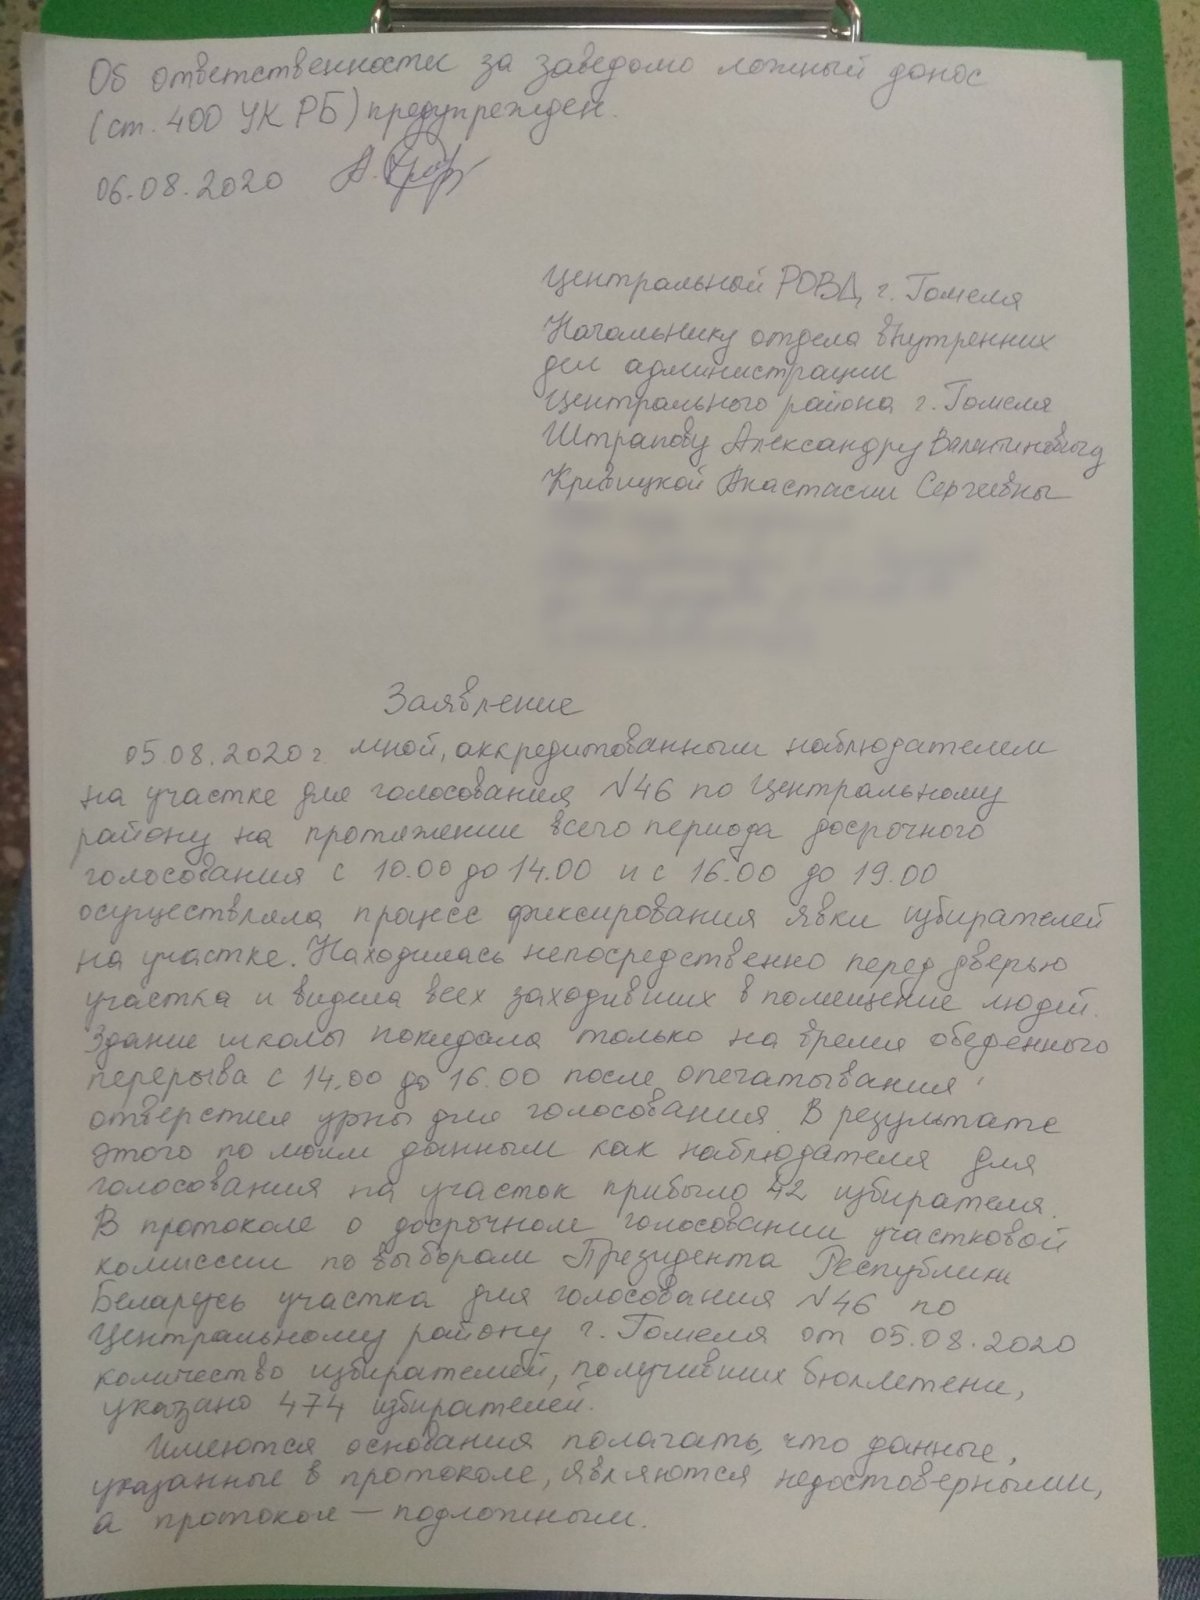 Об ответственности за заведомо ложный донос
(ст. 400 УК РБ) предупрежден.
06.08.2020 А.
Центральный РОВД г. Гомеля
Начальнику отдела внутренних
дел администрации
Центрального района г. Гомеля
Штрапову Александру Валентиновичу
Кривицкой Анастасии Сергеевны
Заявление
05.08.2020 г. мной, аккредитованным наблюдателем
на участке для голосования №46 по Центральному
району на протяжении всего периода досрочного
голосования с 10.00 до 14.00 и с 16.00 до 19.00
осуществляла процесс фиксирования явки избирателей
на участке. Находилась непосредственно перед дверью
участка и видела всех заходивших в помещение людей.
Здание школы покидала только на время обеденного
перерыва с 14.00 до 16.00 после опечатывания
отверстия урны для голосования. В результате
этого по моим данным как наблюдателя для
голосования на участок прибыло 42 избирателя.
В протоколе о досрочном голосовании участковой
комиссии по выборам Президента Республики
Беларусь участка для голосования №46 по
Центральному району г. Гомеля от 05.08.2020
количество избирателей, получивших бюллетени,
указано 474 избирателей.
Имеются основания полагать, что данные,
указанные в протоколе, являются недостоверными,
а протокол — подложным.